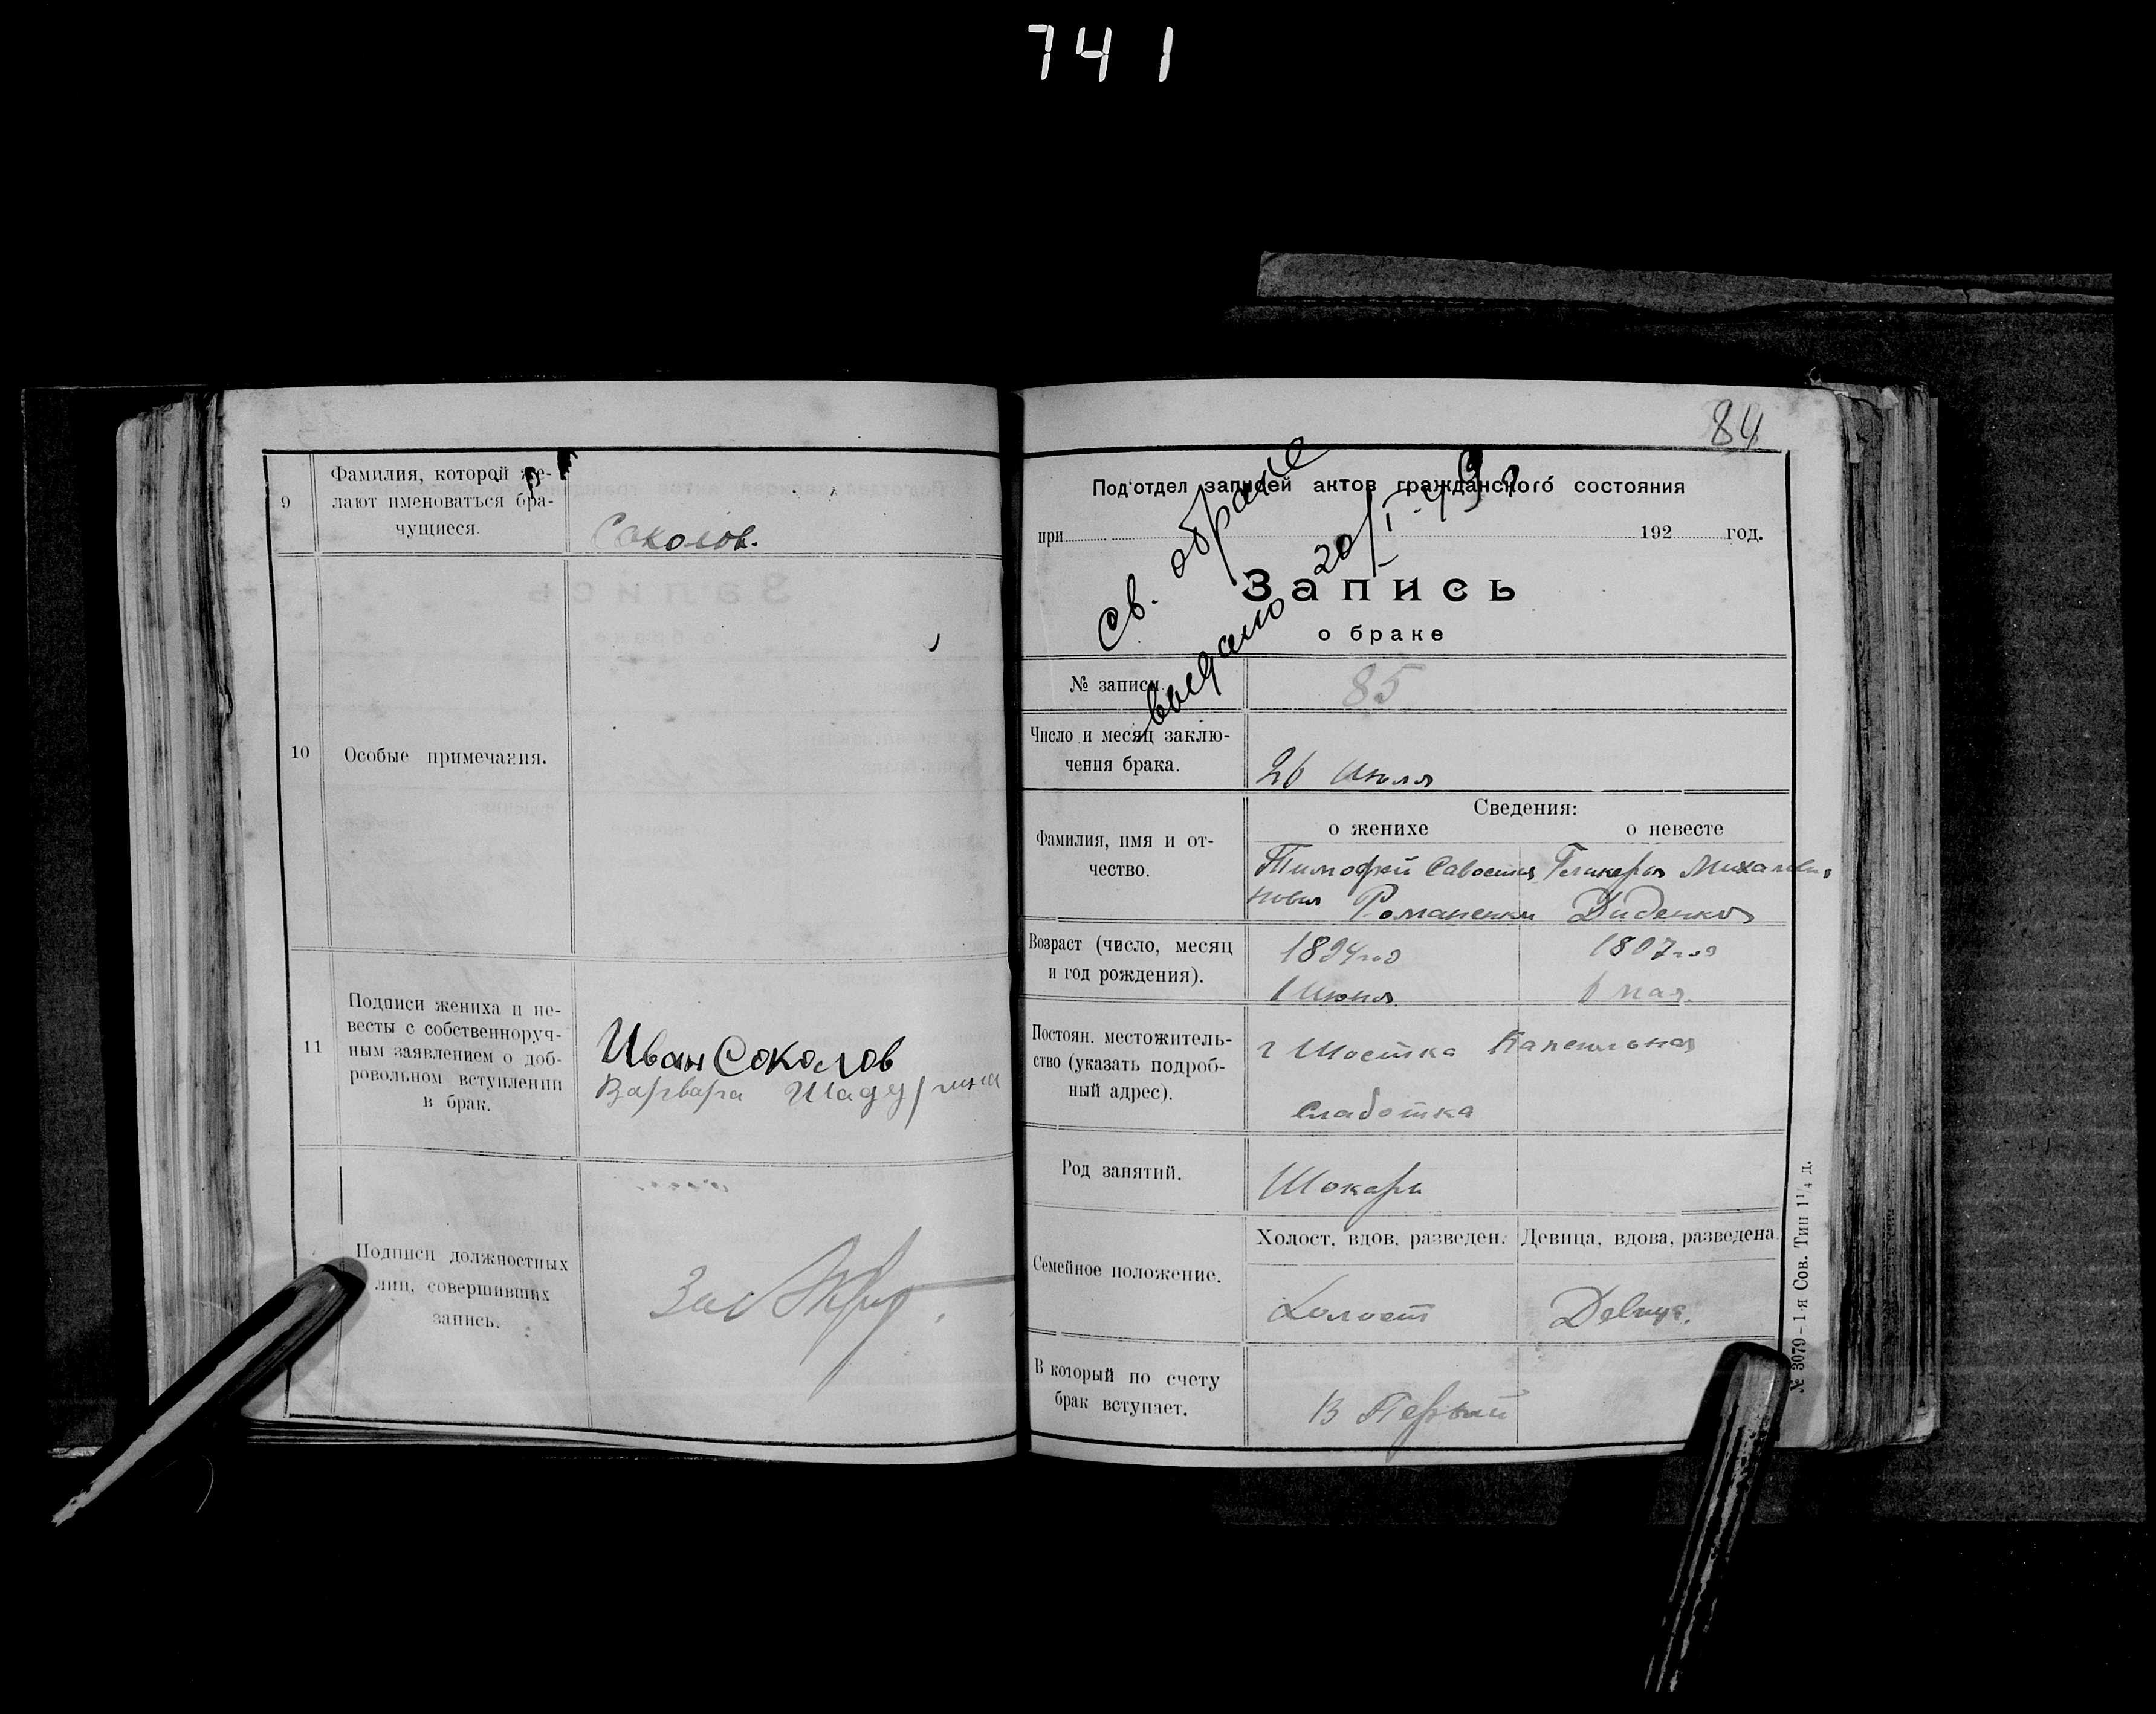 741
9
Фамилия, которой же-
лают именоваться бра-
чущиеся.
Соколов.
10
Особые примечания.
11
Подписи жениха и не-
весты с собственноруч-
ным заявлением о доб-
ровольном вступлении
в брак.
Иван Соколов
Варвара
Подписи должностных
лиц, совершивших
запись.
84
Под'отдел записей актов гражданского состояния
при 192 год.
Св. о браке
выдано 20/I
Запись
о браке
№ записи.
85
Число и месяц заклю-
чения брака.
26 Июля
Сведения:
о женихе
о невесте
Фамилия, имя и от-
чество.
Тимофей Савостия
нович Романенки
Гликерья
Диденко
Возраст (число, месяц
и год рождения).
1894 год
1 Июня.
6 мая.
Постоян. местожитель-
ство (указать подроб-
ный адрес).
г Шостка Капсюльная
слаботка
Род занятий.
Шокарь
Семейное положение.
Холост, вдов, разведен.
Девица, вдова, разведена.
Холост
Девица.
В который по счету
брак вступает.
В Первый
№ 3079–1-я Сов. Тип 1¹/₄ д.